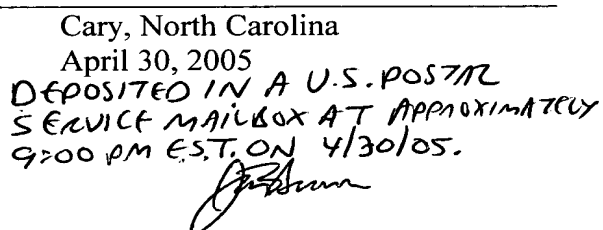 Cary, North Carolina
April 30, 2005
DEPOSITED IN A U.S. POSTAL
SERVICE MAILBOX AT APPROXIMATELY
9:00 PM E.S.T. ON 4/30/05.